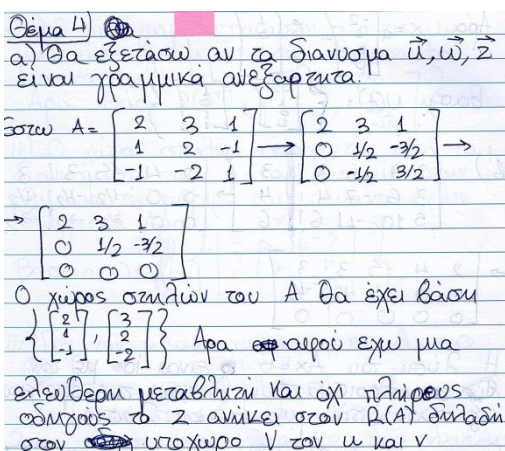 Θέμα 4)
α) Θα εξετάσω αν τα διανυσμα u⃗, w⃗, z⃗
είναι γραμμικά ανεξαρτητα.
Εστω A = [2 3 1; 1 2 -1; -1 -2 1] → [2 3 1; 0 1/2 -3/2; 0 -1/2 3/2] →
→ [2 3 1; 0 1/2 -3/2; 0 0 0]
Ο χώρος στηλών του A θα έχει βάση
{[2 1 -1], [3 2 -2]} Άρα αφού εχω μια
ελεύθερη μεταβλητή και όχι πλήρους
οδηγούς το z ανήκει στον R(A) δηλαδή
στον υποχωρο V των u και v